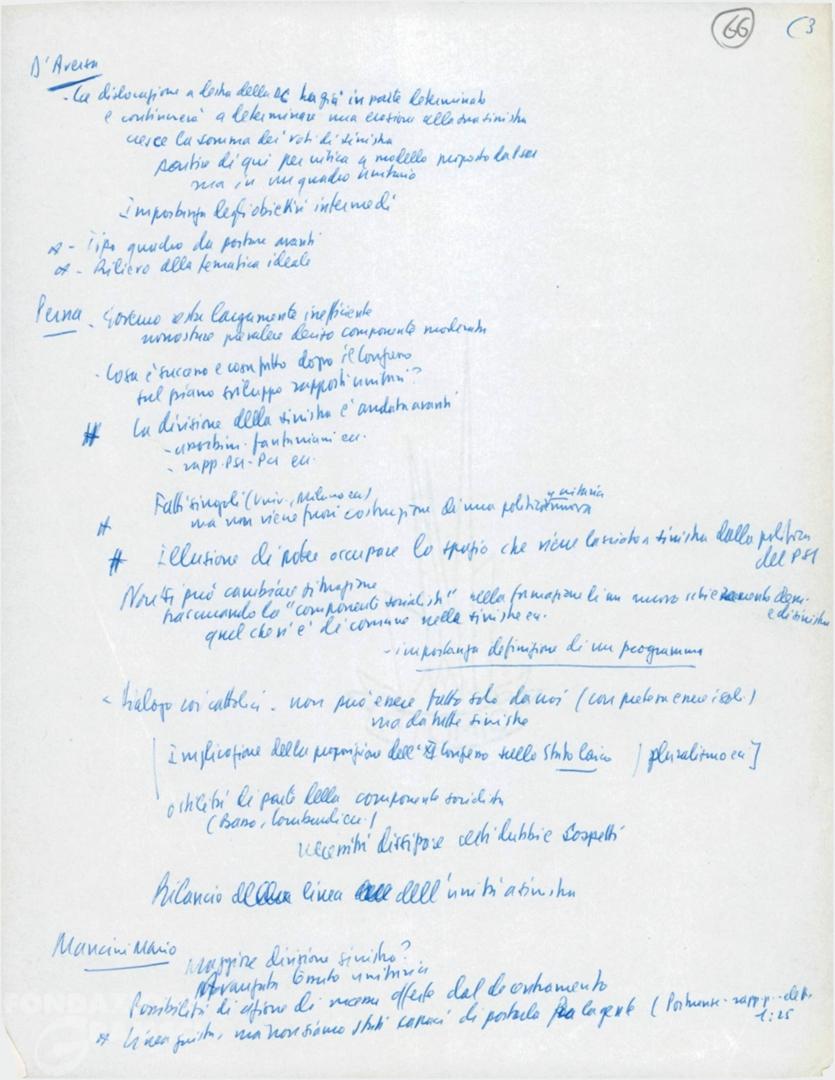 66 3
D'Aversa
- La dislocazione a destra della DC ha già in parte determinato
e continuerà a determinare una erosione alla sua sinistra
cresce la somma dei voti di sinistra
partire di qui per critica a modello proposto dal PSI
ma in un quadro unitario
Importanza degli obiettivi intermedi
- Tipo quadro da portare avanti
- Rilievo alla tematica ideale
Perna - Governo resta largamente inefficiente
nonostante prevalere deciso componente moderata
- Cosa è successo e cosa fatto dopo il Congresso
sul piano sviluppo rapporti unitari?
# La divisione della sinistra è andata avanti
- fanfaniani ecc.
- rapp. PSI-PCI ecc.
Fatti singoli (Univ., Milano ecc)
unitaria
ma non viene fuori costruzione di una politica nuova
# Illusione di poter occupare lo spazio che viene lasciato a sinistra dalla politica
del PSI
Non si può cambiare situazione
trascurando la "componenti socialisti" nella formazione di un nuovo schieramento dem.
e di sinistra
quel che vi è di comune nella sinistra ecc.
- importanza definizione di un programma
- Dialogo coi cattolici - non può essere fatto solo da noi
ma da tutte sinistre
Implicazione della proposizione dell'XI Congresso sullo Stato laico (pluralismo ecc]
ostilità di parte della componente socialista
(Basso, Lombardi ecc.)
necessità dissipare certi dubbi e sospetti
Rilancio della linea dell'unità a sinistra
Mancini Mario
Maggiore divisione sinistra?
Avanzata tessuto unitario
Possibilità di azione di massa offerte dal decentramento
Linea giusta, ma non siamo stati capaci di portarla fra la gente
1:25